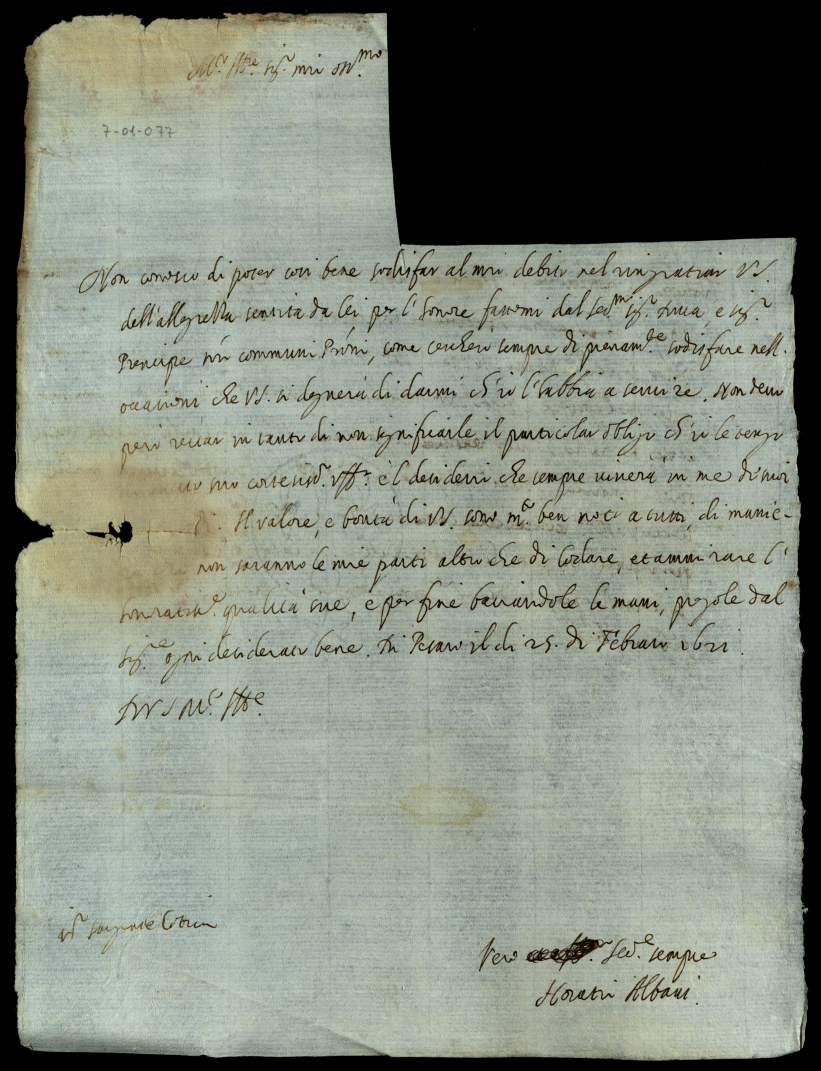 M.r Ill.re sig.r mio oss.mo
7-01-077
Non conosco di poter così bene sodisfar al mio debito nel ringratiar VS.
dell'allegrezza sentita da lei per l'honore fattomi dal Ser.mo sig.r Duca, e sig.r
Prencipe n'ri communi P'roni, come cercherò sempre di pienam.te sodisfare nell'
occasioni che VS. si degnerà di darmi ch'io l'habbia a servire. Non devo
però restar in tanto di non significarle il particolar obligo ch'io le tengo
suo cortesiss.o uff.o e'l desiderio che sempre viverà in me di suoi
Il valore, e bontà di VS. sono m.o ben noti a tutti, di manie-
non saranno le mie parti altro che di lodare, et ammirare l'
qualità sue, e per fine baciandole le mani, pregole dal
sig.re ogni desiderato bene. Di Pesaro il di 25. di Febraro 1621.
Di VS M.o Ill.re
Vero Ser.e sempre
Horatio Albani.